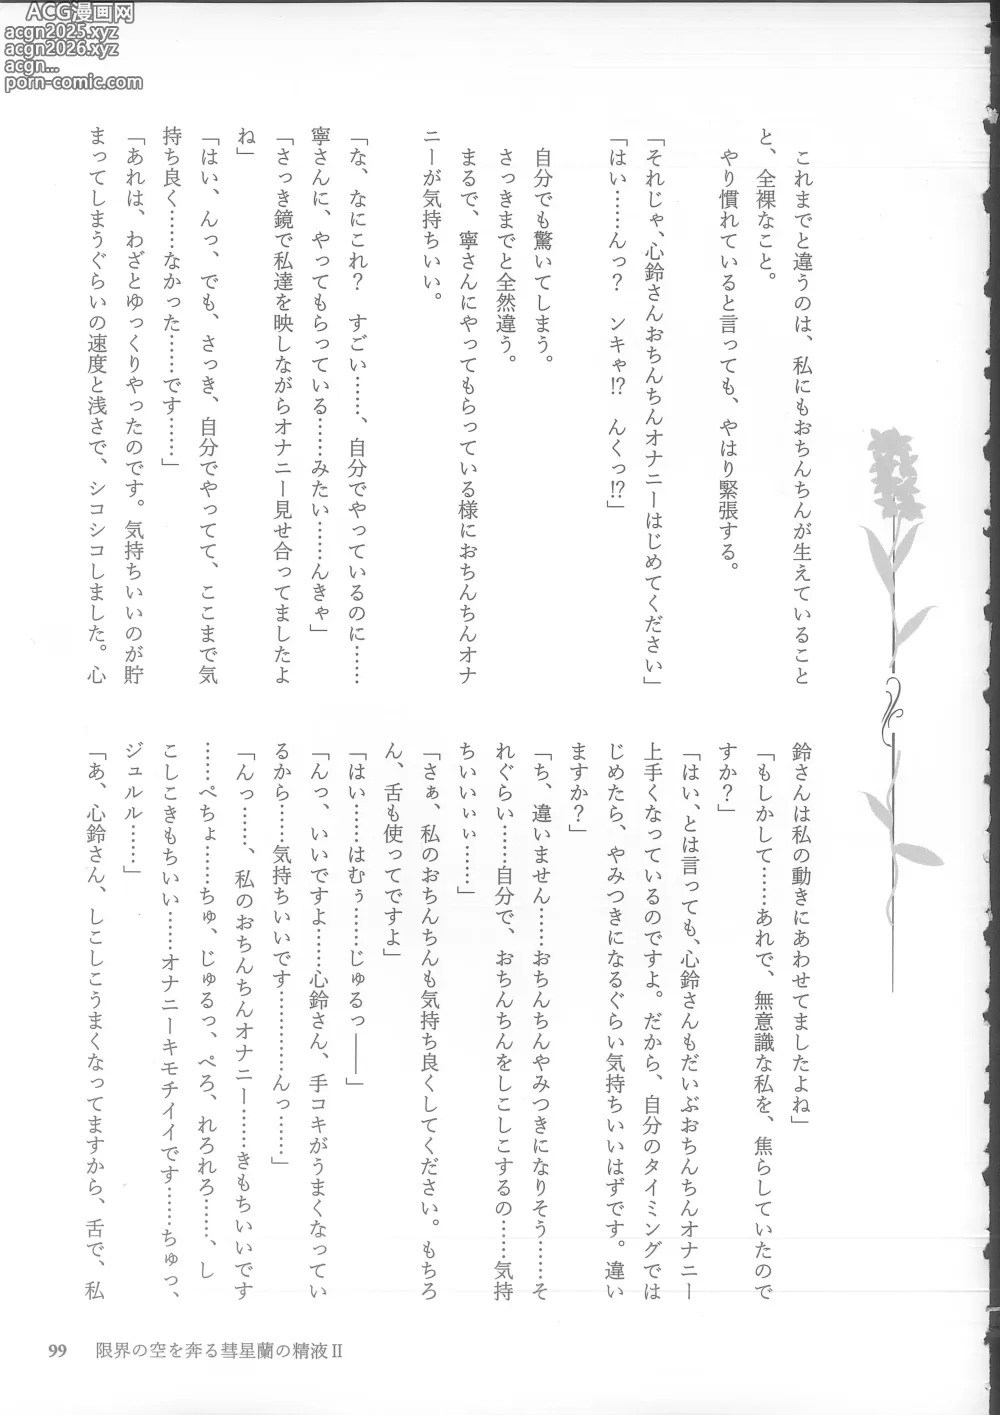 ACG漫画网
acgn2025.xyz
acgn2026.xyz
acgn...
porn-comic.com
これまでと違うのは、私にもおちんちんが生えていること
と、全裸なこと。
やり慣れていると言っても、やはり緊張する。
「それじゃ、心鈴さんおちんちんオナニーはじめてください」
「はい……んっ？　ンキゃ⁉　んくっ⁉」
自分でも驚いてしまう。
さっきまでと全然違う。
まるで、寧さんにやってもらっている様におちんちんオナ
ニーが気持ちいい。
「な、なにこれ？　すごい……、自分でやっているのに……
寧さんに、やってもらっている……みたい……んきゃ」
「さっき鏡で私達を映しながらオナニー見せ合ってましたよ
ね」
「はい、んっ、でも、さっき、自分でやってて、ここまで気
持ち良く……なかった……です……」
「あれは、わざとゆっくりやったのです。気持ちいいのが貯
まってしまうぐらいの速度と浅さで、シコシコしました。心
鈴さんは私の動きにあわせてましたよね」
「もしかして……あれで、無意識な私を、焦らしていたので
すか？」
「はい、とは言っても、心鈴さんもだいぶおちんちんオナニー
上手くなっているのですよ。だから、自分のタイミングでは
じめたら、やみつきになるぐらい気持ちいいはずです。違い
ますか？」
「ち、違いません……おちんちんやみつきになりそう……そ
れぐらい……自分で、おちんちんをしこしこするの……気持
ちいいぃぃ……」
「さぁ、私のおちんちんも気持ち良くしてください。もちろ
ん、舌も使ってですよ」
「はい……はむぅ……じゅるっ――」
「んっ、いいですよ……心鈴さん、手コキがうまくなってい
るから……気持ちいいです…………んっ……」
「んっ……、私のおちんちんオナニー……きもちいいです
……ぺちょ……ちゅ、じゅるっ、ぺろ、れろれろ……、し
こしこきもちいい……オナニーキモチイイです……ちゅっ、
ジュルル……」
「あ、心鈴さん、しこしこうまくなってますから、舌で、私
99　限界の空を奔る彗星蘭の精液Ⅱ